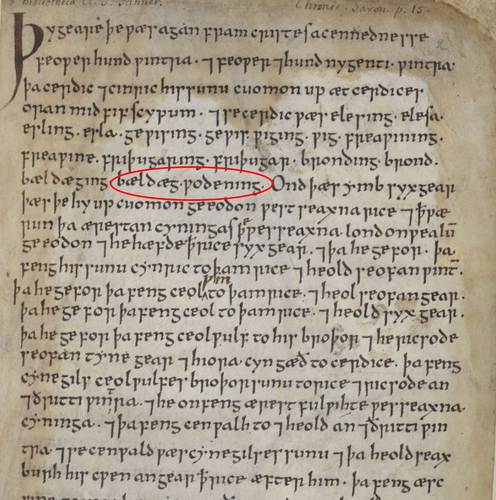 Chronic. Saxon. p. 15.
Þy geare þe ƿæs agan fram cristes acennednesse
feoƿer hund ƿintra · ⁊ feoƿer ⁊ hund nygentig · ƿintra ·
þa cerdic ⁊ cinric his sunu cuomon up æt cerdices
oran mid fif scypum · ⁊ se cerdic ƿæs elesing · elesa
esling · esla · geƿising · geƿis · ƿiging · ƿig · freaƿining ·
freaƿine · friþugaring · friþugar · bronding · brond ·
bældæging · bældæg · ƿodening · Ond þæs ymb syx gear
þæs þe hy up cuomon geeodon ƿest seaxna rice · ⁊ þ̄ ƿæs
þa ærestan cyningas þe ƿest seaxna · lond on ƿealū
geeodon ⁊ he hæfde þ̄ rice syx gear · ⁊ þa he gefor · þa
feng his sunu cynric to þam rice ⁊ heold seofan ƿint̄
þa he gefor þa feng ceol to þam rice · ⁊ heol seofan gear ·
þa he gefor þa feng ceol to þam rice · ⁊ heold syx gear ·
þa he gefor þa feng ceolƿulf to his broþor ⁊ he ricsode
seofan tyne gear ⁊ hiora cyn gæð to cerdice · þa feng
cynegils ceolƿulfes broþor sunu to rice ⁊ ricsode an
⁊ ðritti ƿint̄ra · ⁊ he onfeng ærest fulƿihte ƿesseaxna
cyninga · ⁊ þa feng cenƿalh to ⁊ heold an ⁊ ðritti ƿin
tra · ⁊ se cenƿald ƿæs cynegilses sunu ⁊ þa heold seax
burh his cƿen an gear þ̄ rice æfter him · þa feng æsc